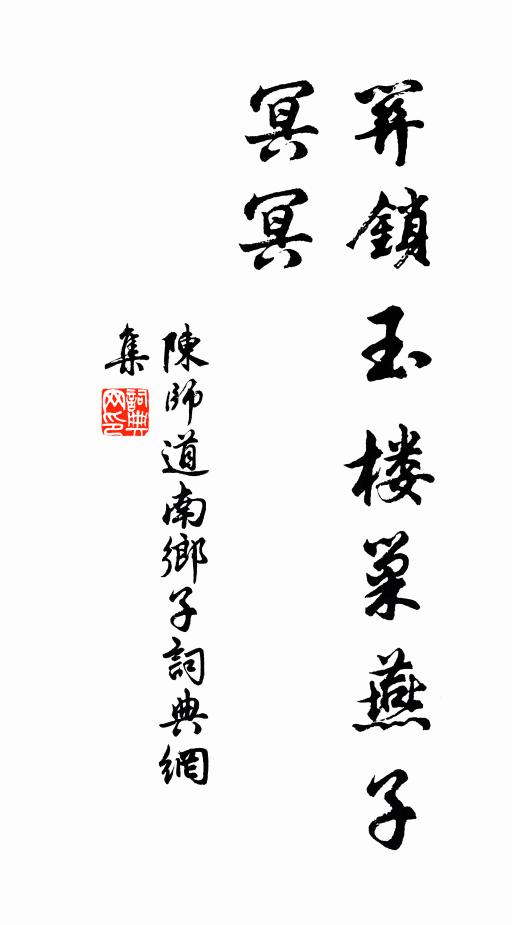 關鎖玉楼巢燕子
冥冥
陳師道南鄉子詞典網
集
詞典
网印